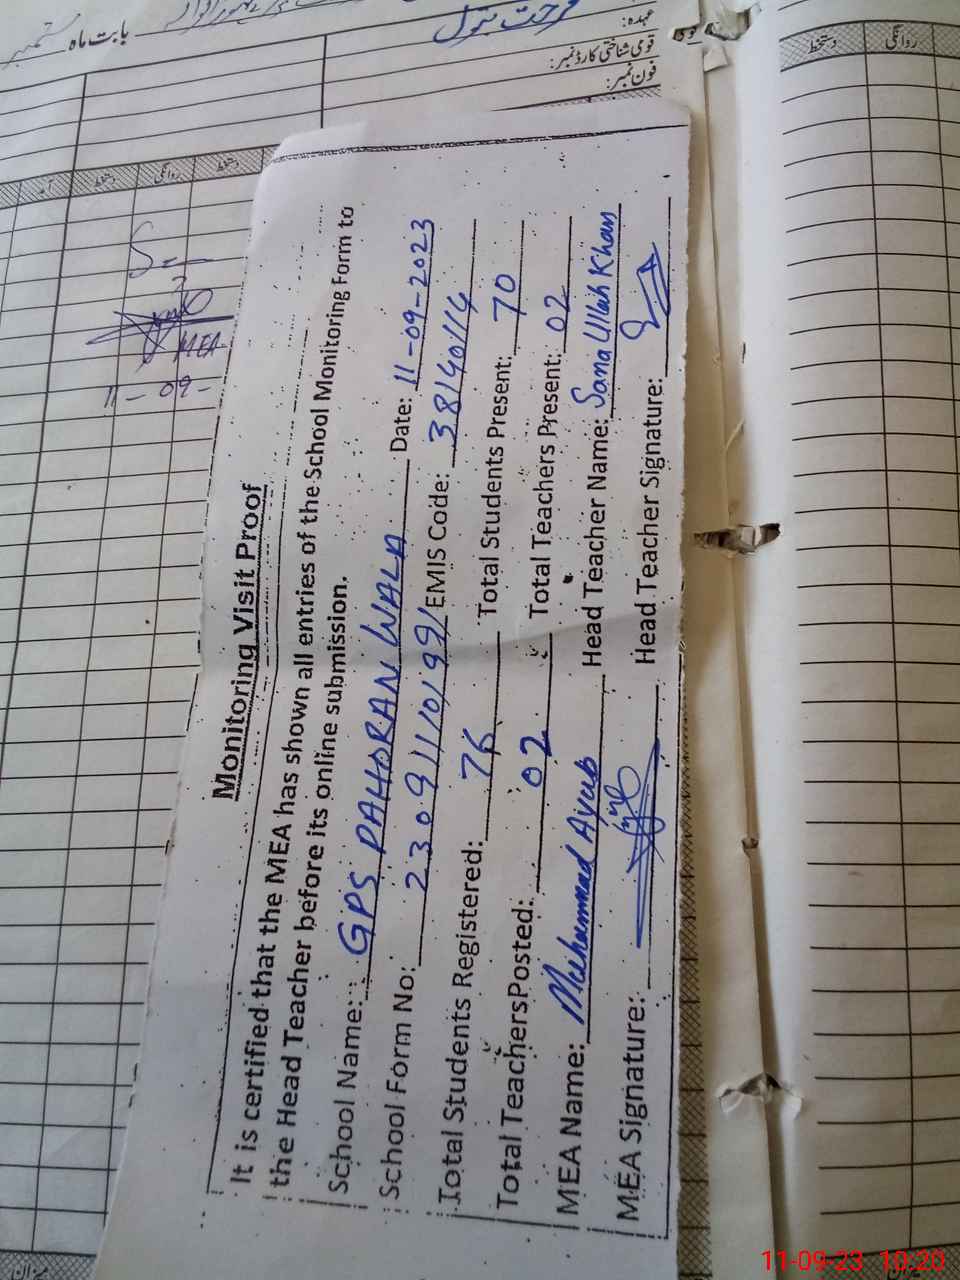 بابت ماہ ستمبر
فرحت بتول
عہدہ:
قومی شناختی کارڈ نمبر:
فون نمبر:
دستخط روانگی دستخط
روانگی دستخط
MEA
11-09-
Monitoring Visit Proof
It is certified that the MEA has shown all entries of the School Monitoring Form to
the Head Teacher before its online submission.
School Name: GPS PAHORAN WALA Date: 11-09-2023
School Form No: 23091110199 EMIS Code: 38140114
Total Students Registered: 76 Total Students Present: 70
Total TeachersPosted: 02 Total Teachers Present: 02
MEA Name: Muhammad Ayub Head Teacher Name: Sana Ullah Khan
MEA Signature: Head Teacher Signature:
میزان
میزان
11-09-23 10:20